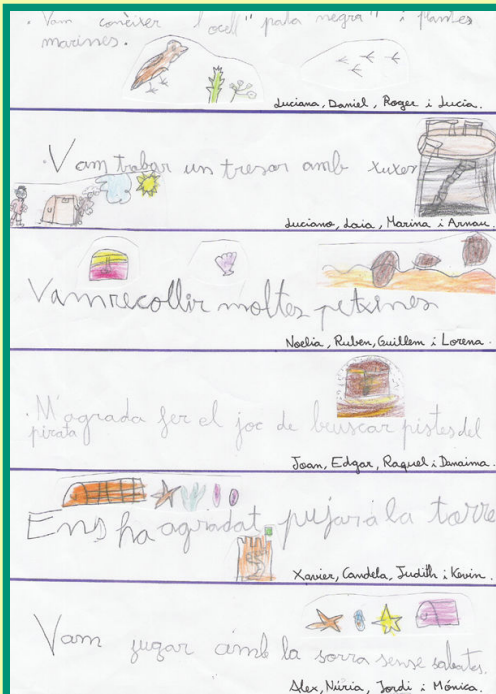 · Vam conèixer l'ocell "pata negra" i plantes
marines.
Luciana, Daniel, Roger i Lucía.
· Vam trobar un tresor amb xuxes
Luciano, Laia, Marina i Arnau.
Vam recollir moltes petxines
Noelia, Ruben, Guillem i Lorena.
· M'agrada fer el joc de beuscar pistes del
pirata
Joan, Edgar, Raquel i Danaima.
Ens ha agradat pujar a la torre
Xavier, Candela, Judith i Kevin.
Vam jugar amb la sorra sense sabates.
Alex, Núria, Jordi i Mónica.